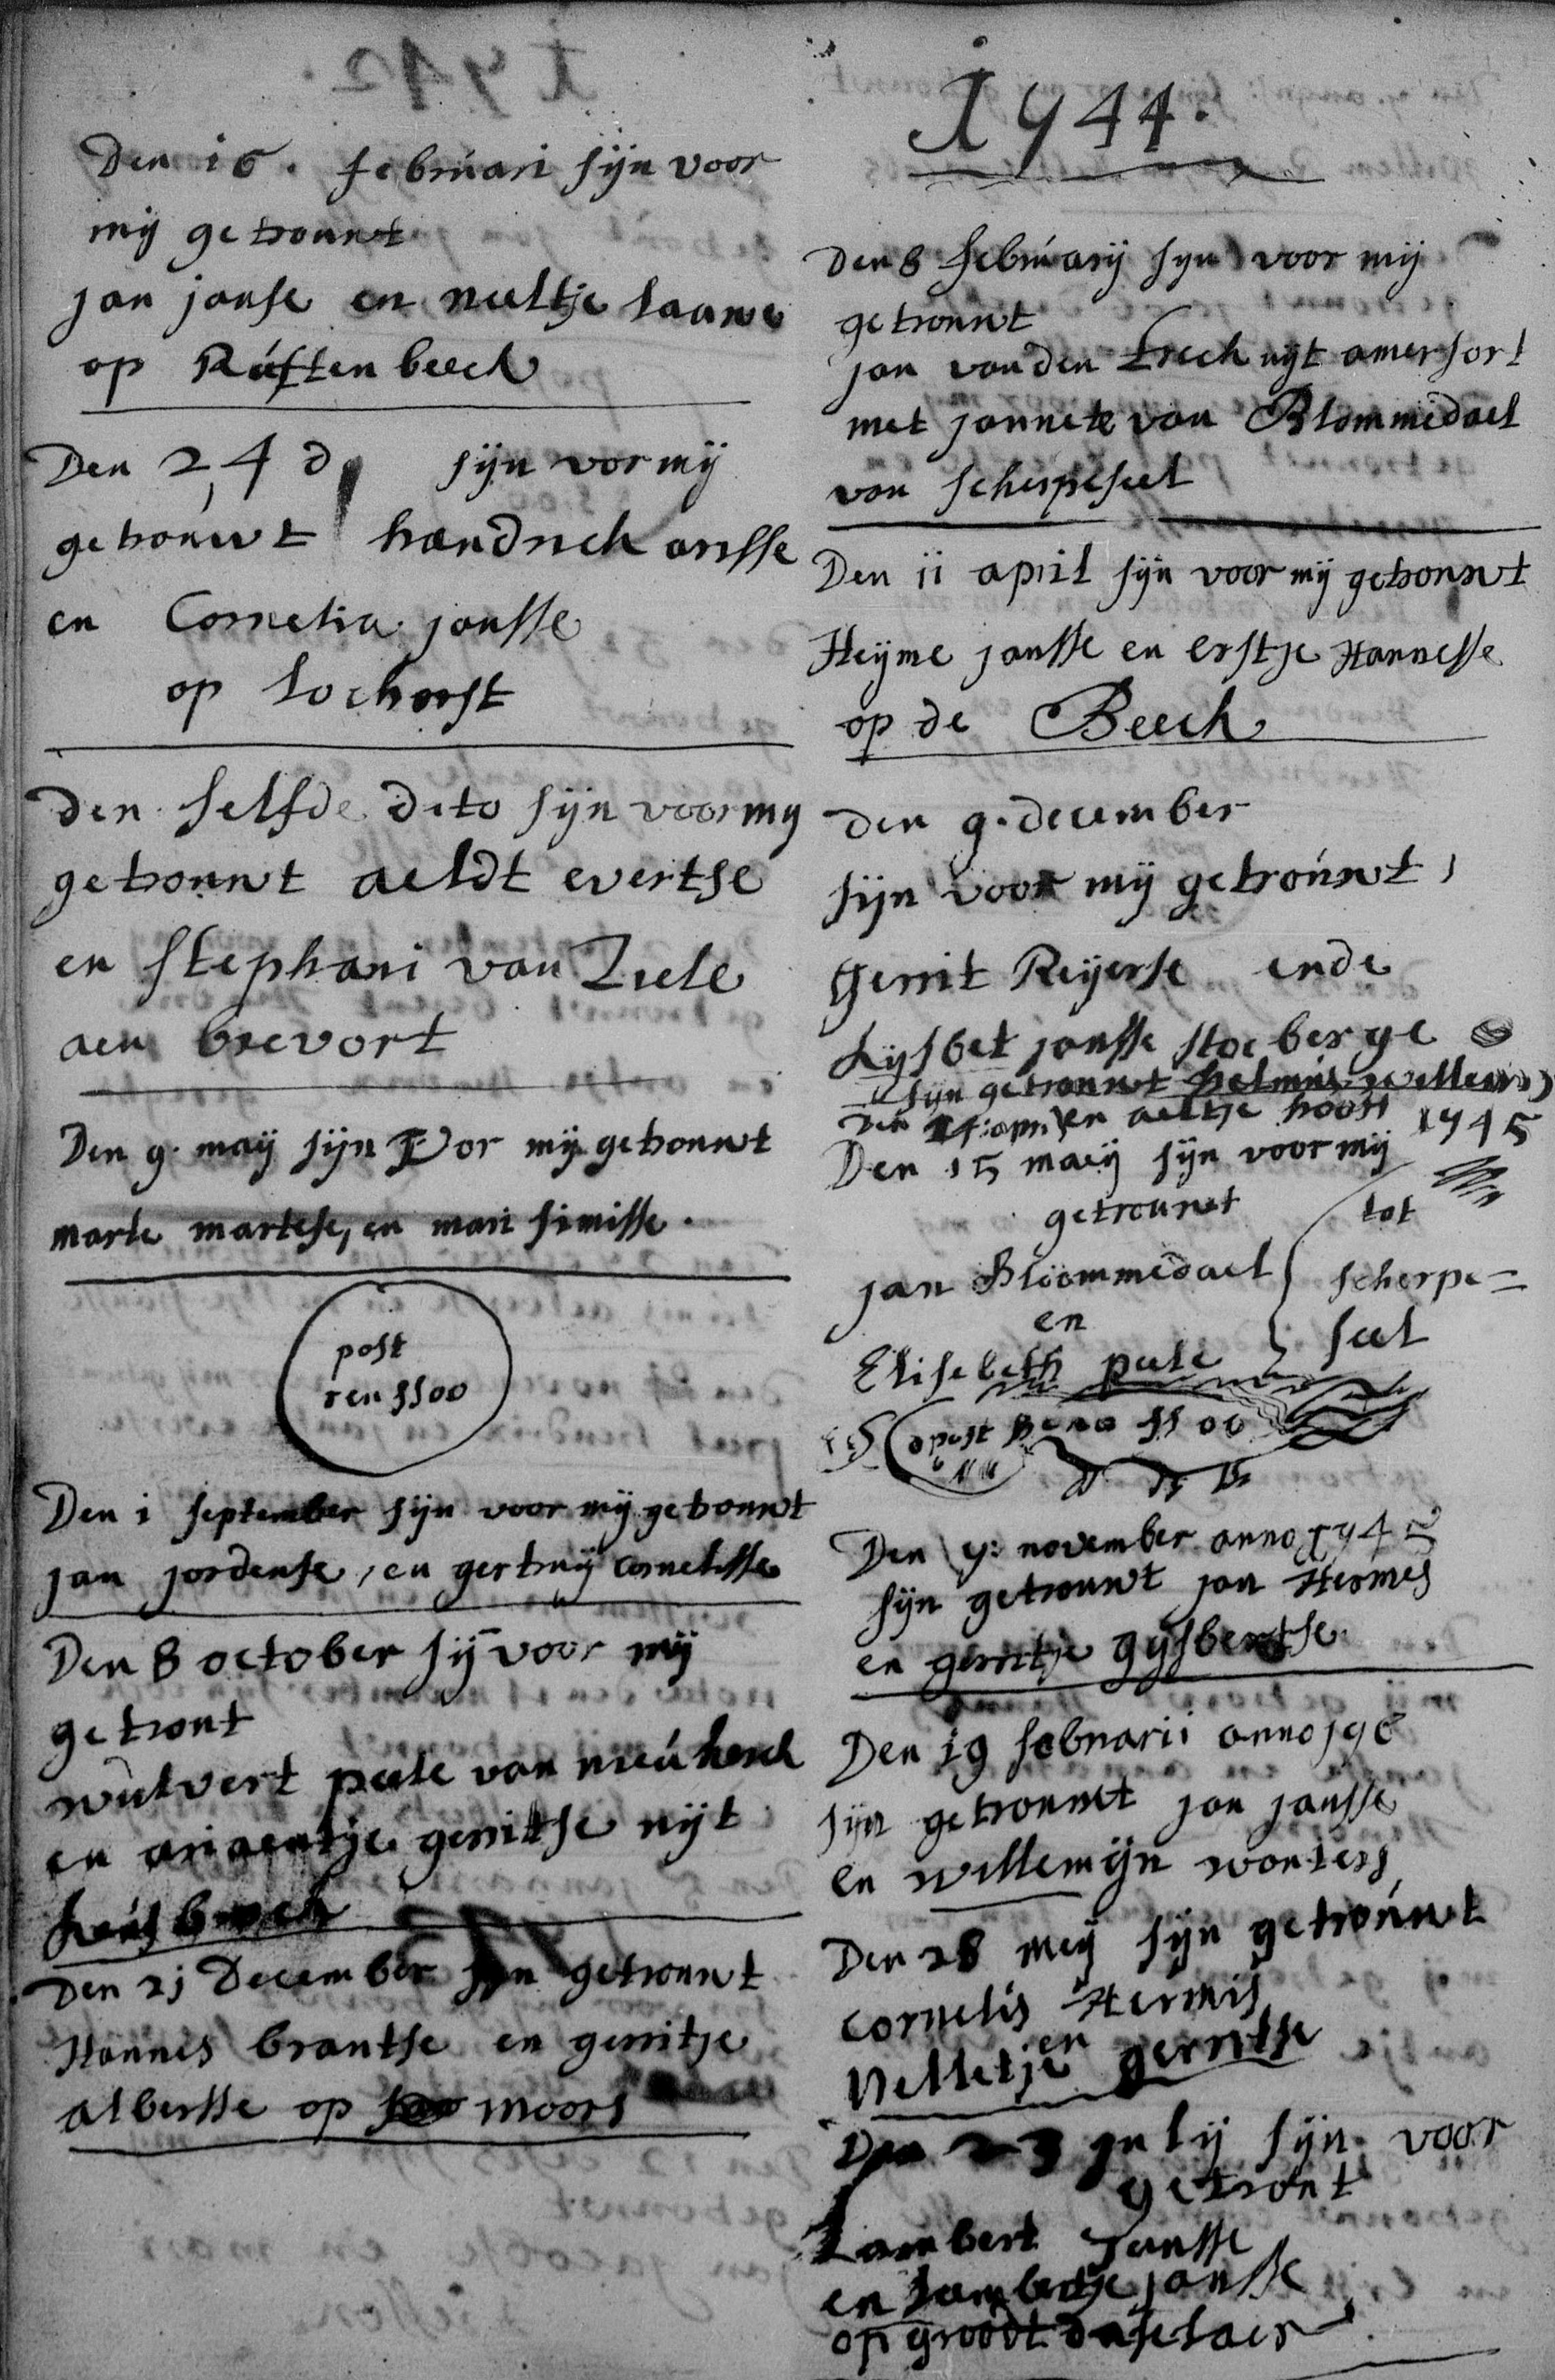 Den i6. februari sijn voor
mij getrouwt
jan janse en neeltje laane
op Ruften beeck
Den 24 d sijn vor mij
getrouwt handrick arisse
en Cornelia jansse
op lochorst
Den selfde dito sijn voor my
getrouwt aeldt evertse
en Stephani van Zeele
aen brevort
Den 9. maij sijn vor mij getrouwt
marte martese, en mari simisse.
post
ren 5500
Den i september sijn voor mij getrouwt
jan jordense, en gertruij cornelisse
Den 8 october sij voor mij
getrout
wulvert peele van nieukerck
en ariaentje gerritse uijt
Den 21 December sijn getrouwt
Hannes brantse en gerritje
albersse op moors
1744.
Den 8 februarij syn voor mij
getrouwt
jan van den Treck uijt amersfort
met jannete van Blommedael
van scherpeseel
Den ii april sijn voor mij getrouwt
Heijme jansse en erstje Hannesse
op de Beeck
Den 9. december
sijn voor mij getrouwt,
Gerrit Reijerse ende
Lijsbet jansse stoeberge
sijn getrouwt helmus willems
Den apri en aeltje hooft
1745
Den 15 maeij sijn voor mij
getrouwt
tot
jan Bloommedael
scherpe=
en
seel
Elisebeth peele
post Bene 5500
Den 7: november anno 1745
sijn getrouwt jan Hermes
en gerritje gysbertse
Den 19 februarii anno 1746
sijn getrouwt jan jansse
en willemijn wouters
Den 28 meij sijn getrouwt
cornelis Hermis
en
Nelletje gerritse
Den 23 julij sijn voor
getrout
Lambert Jansse
en lambertje jansse
op groodt daselaer